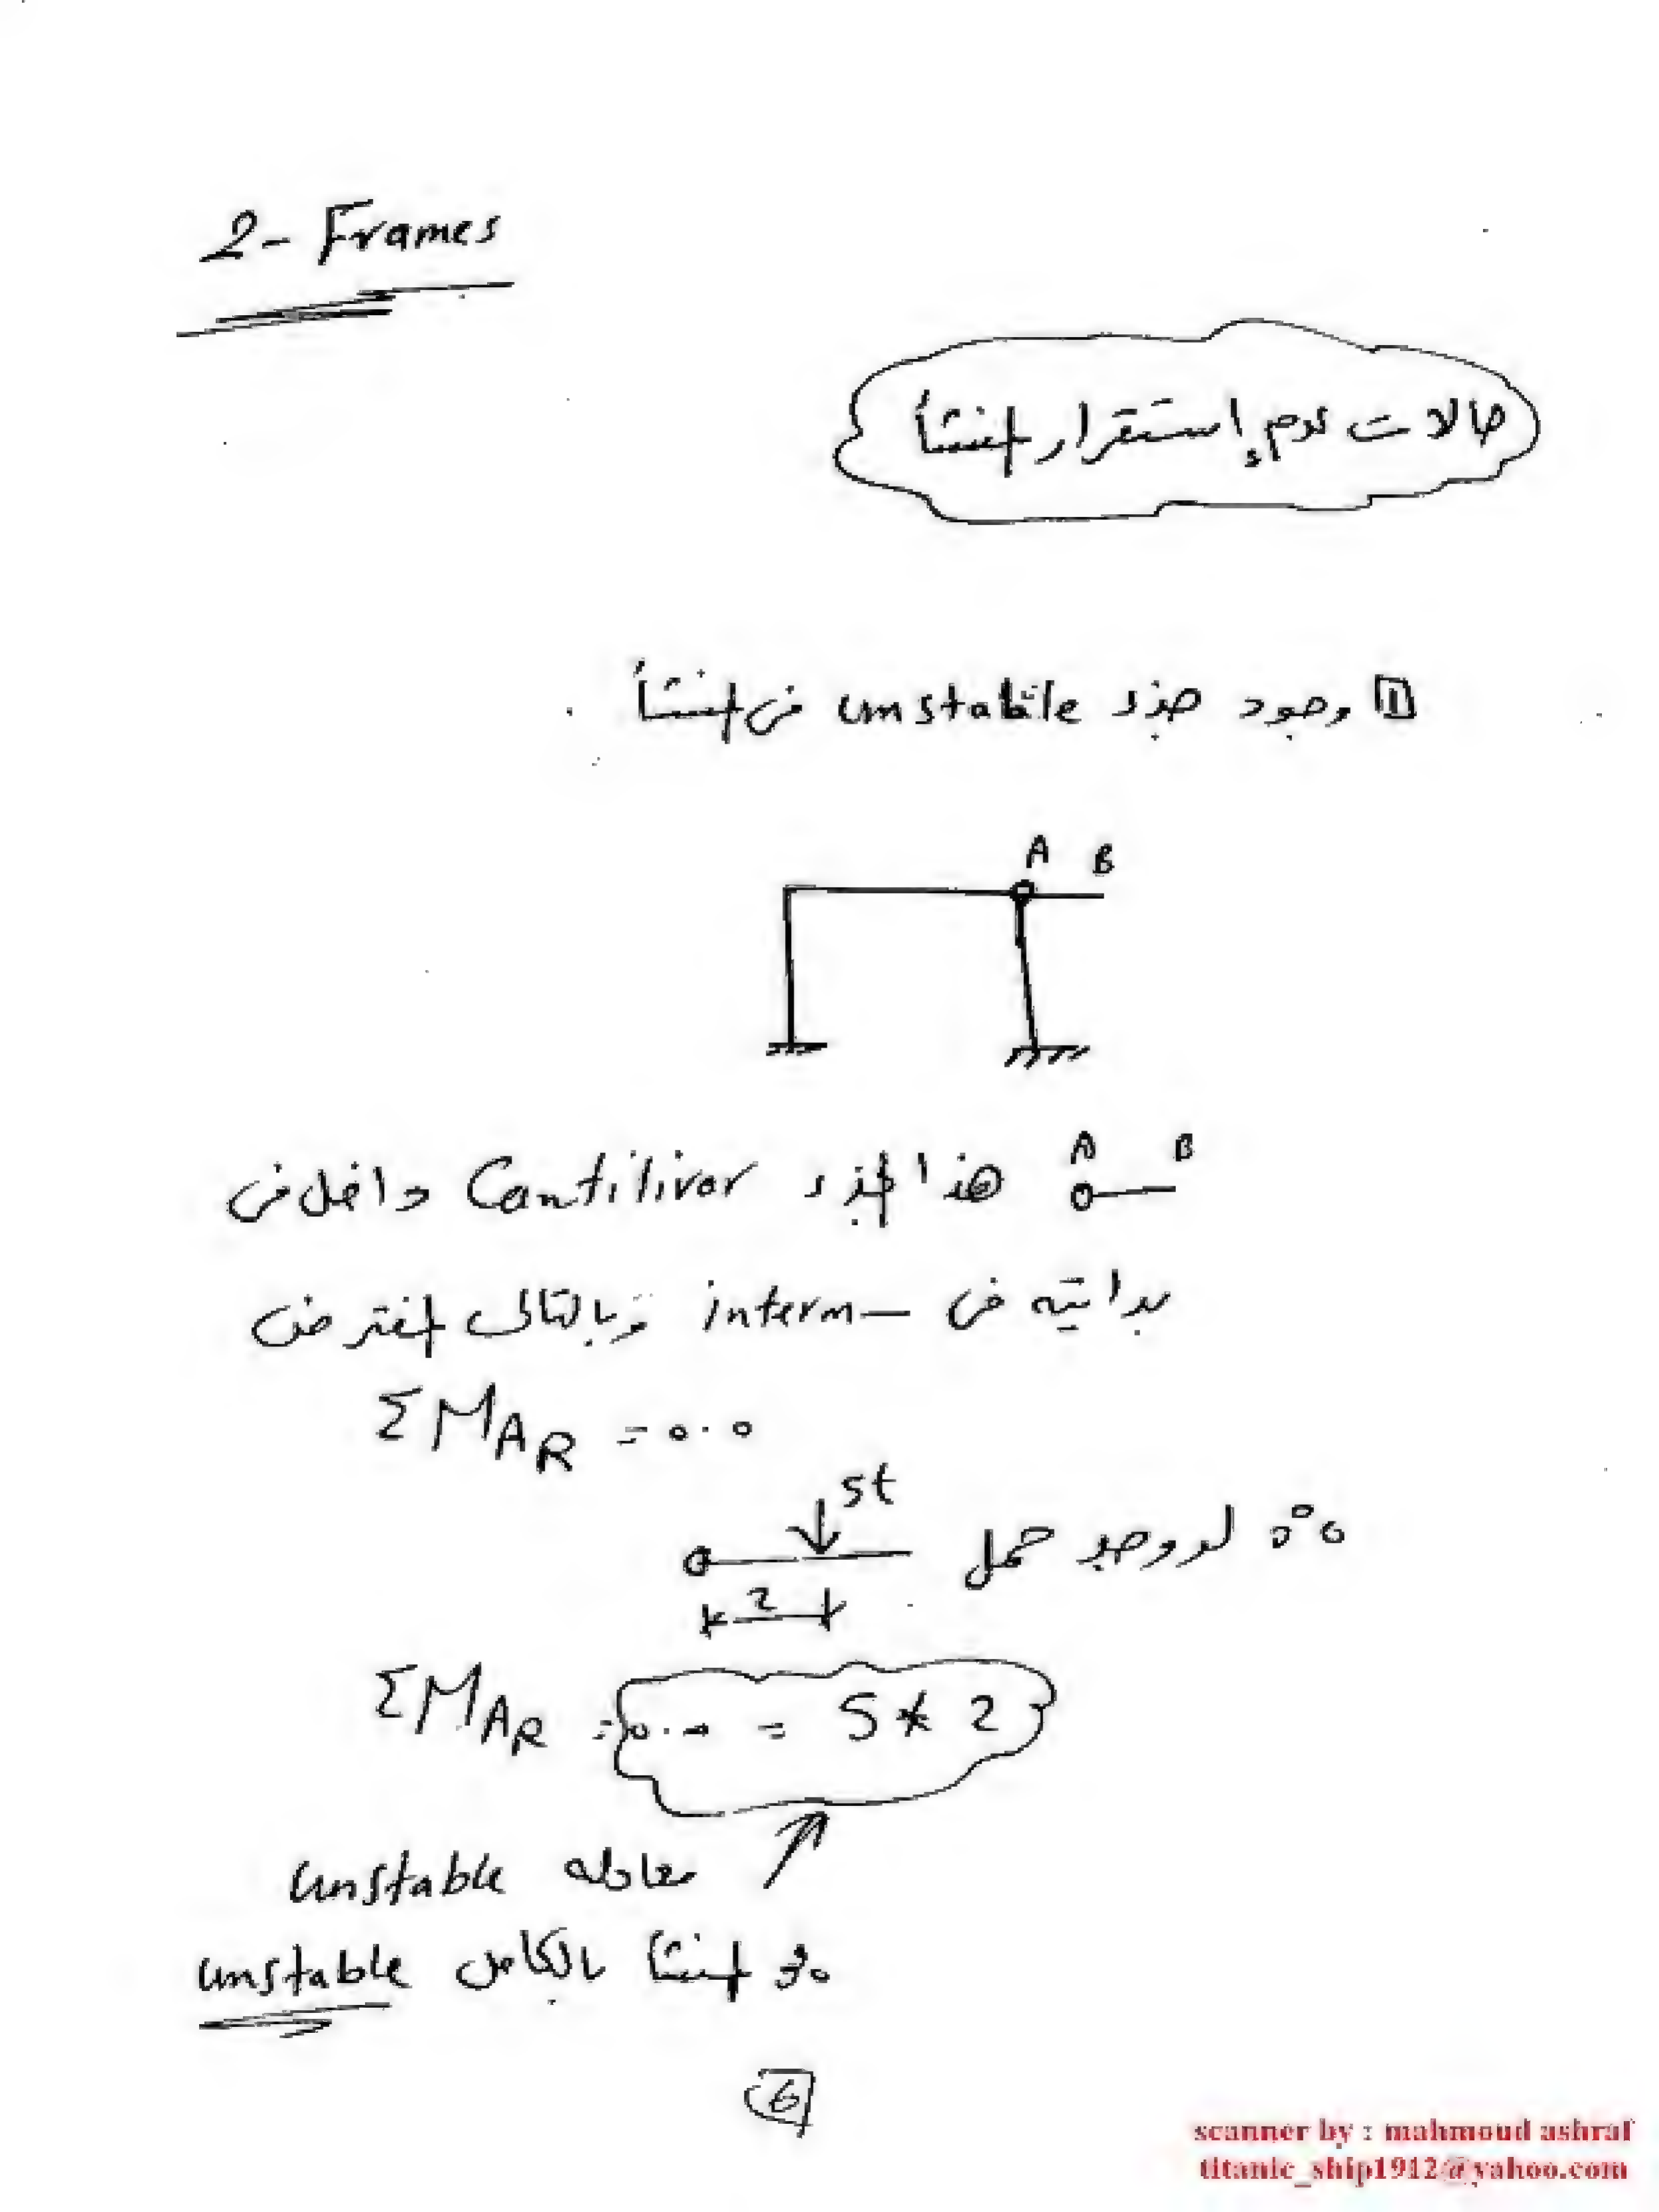 2- Frames
حالات عدم إستقرار المنشأ
1 وجود جزء unstable فى المنشأ .
A B
A B
هذا الجزء Cantiliver داخل فى
بدايته فى interm— وبالتالى المفترض
ΣMAR = 0.0
5t
∴ لو وجد حمل
2
ΣMAR = 0.0 = 5 * 2
معادله unstable
∴ المنشأ بالكامل unstable
6
scanner by : mahmoud ashraf
titanic_ship1912@yahoo.com